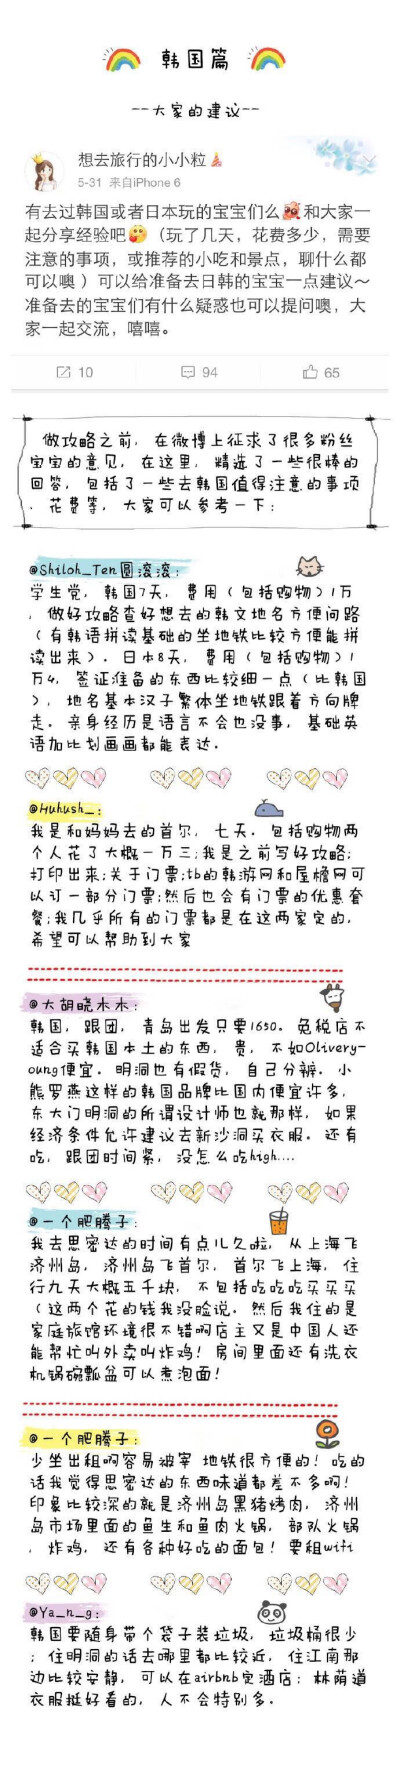 韩国篇
--大家的建议--
想去旅行的小小粒
5-31 来自iPhone 6
有去过韩国或者日本玩的宝宝们么和大家一
起分享经验吧（玩了几天，花费多少，需要
注意的事项，或推荐的小吃和景点，聊什么都
可以噢 ）可以给准备去日韩的宝宝一点建议～
准备去的宝宝们有什么疑惑也可以提问噢，大
家一起交流，嘻嘻。
10 94 65
做攻略之前，在微博上征求了很多粉丝
宝宝的意见，在这里，精选了一些很棒的
回答，包括了一些去韩国值得注意的事项
，花费等，大家可以参考一下：
@Shiloh_Ten圆滚滚：
学生党，韩国7天，费用（包括购物）1万
，做好攻略查好想去的韩文地名方便问路
（有韩语拼读基础的坐地铁比较方便能拼
读出来）。日本8天，费用（包括购物）1
万4，签证准备的东西比较细一点（比韩国
），地名基本汉子繁体坐地铁跟着方向牌
走。亲身经历是语言不会也没事，基础英
语加比划画画都能表达。
@Huhush_：
我是和妈妈去的首尔，七天。包括购物两
个人花了大概一万三;我是之前写好攻略;
打印出来;关于门票:tb的韩游网和屋檐网可
以订一部分门票;然后也会有门票的优惠套
餐;我几乎所有的门票都是在这两家定的，
希望可以帮助到大家
@大胡晓木木：
韩国，跟团，青岛出发只要1650。免税店不
适合买韩国本土的东西，贵，不如Olivery-
oung便宜。明洞也有假货，自己分辨。小
熊罗燕这样的韩国品牌比国内便宜许多，
东大门明洞的所谓设计师也就那样，如果
经济条件允许建议去新沙洞买衣服。还有
吃，跟团时间紧，没怎么吃high....
@一个肥腾子：
我去思密达的时间有点儿久啦，从上海飞
济州岛，济州岛飞首尔，首尔飞上海，住
行九天大概五千块，不包括吃吃吃买买买
（这两个花的钱我没脸说。然后我住的是
家庭旅馆环境很不错啊店主又是中国人还
能帮忙叫外卖叫炸鸡！房间里面还有洗衣
机锅碗瓢盆可以煮泡面！
@一个肥腾子：
少坐出租啊容易被宰 地铁很方便的！吃的
话我觉得思密达的东西味道都差不多啊！
印象比较深的就是济州岛黑猪烤肉，济州
岛市场里面的鱼生和鱼肉火锅，部队火锅
，炸鸡，还有各种好吃的面包！要租wifi
@Ya_n_g：
韩国要随身带个袋子装垃圾，垃圾桶很少
；住明洞的话去哪里都比较近，住江南那
边比较安静，可以在airbnb定酒店；林荫道
衣服挺好看的，人不会特别多。